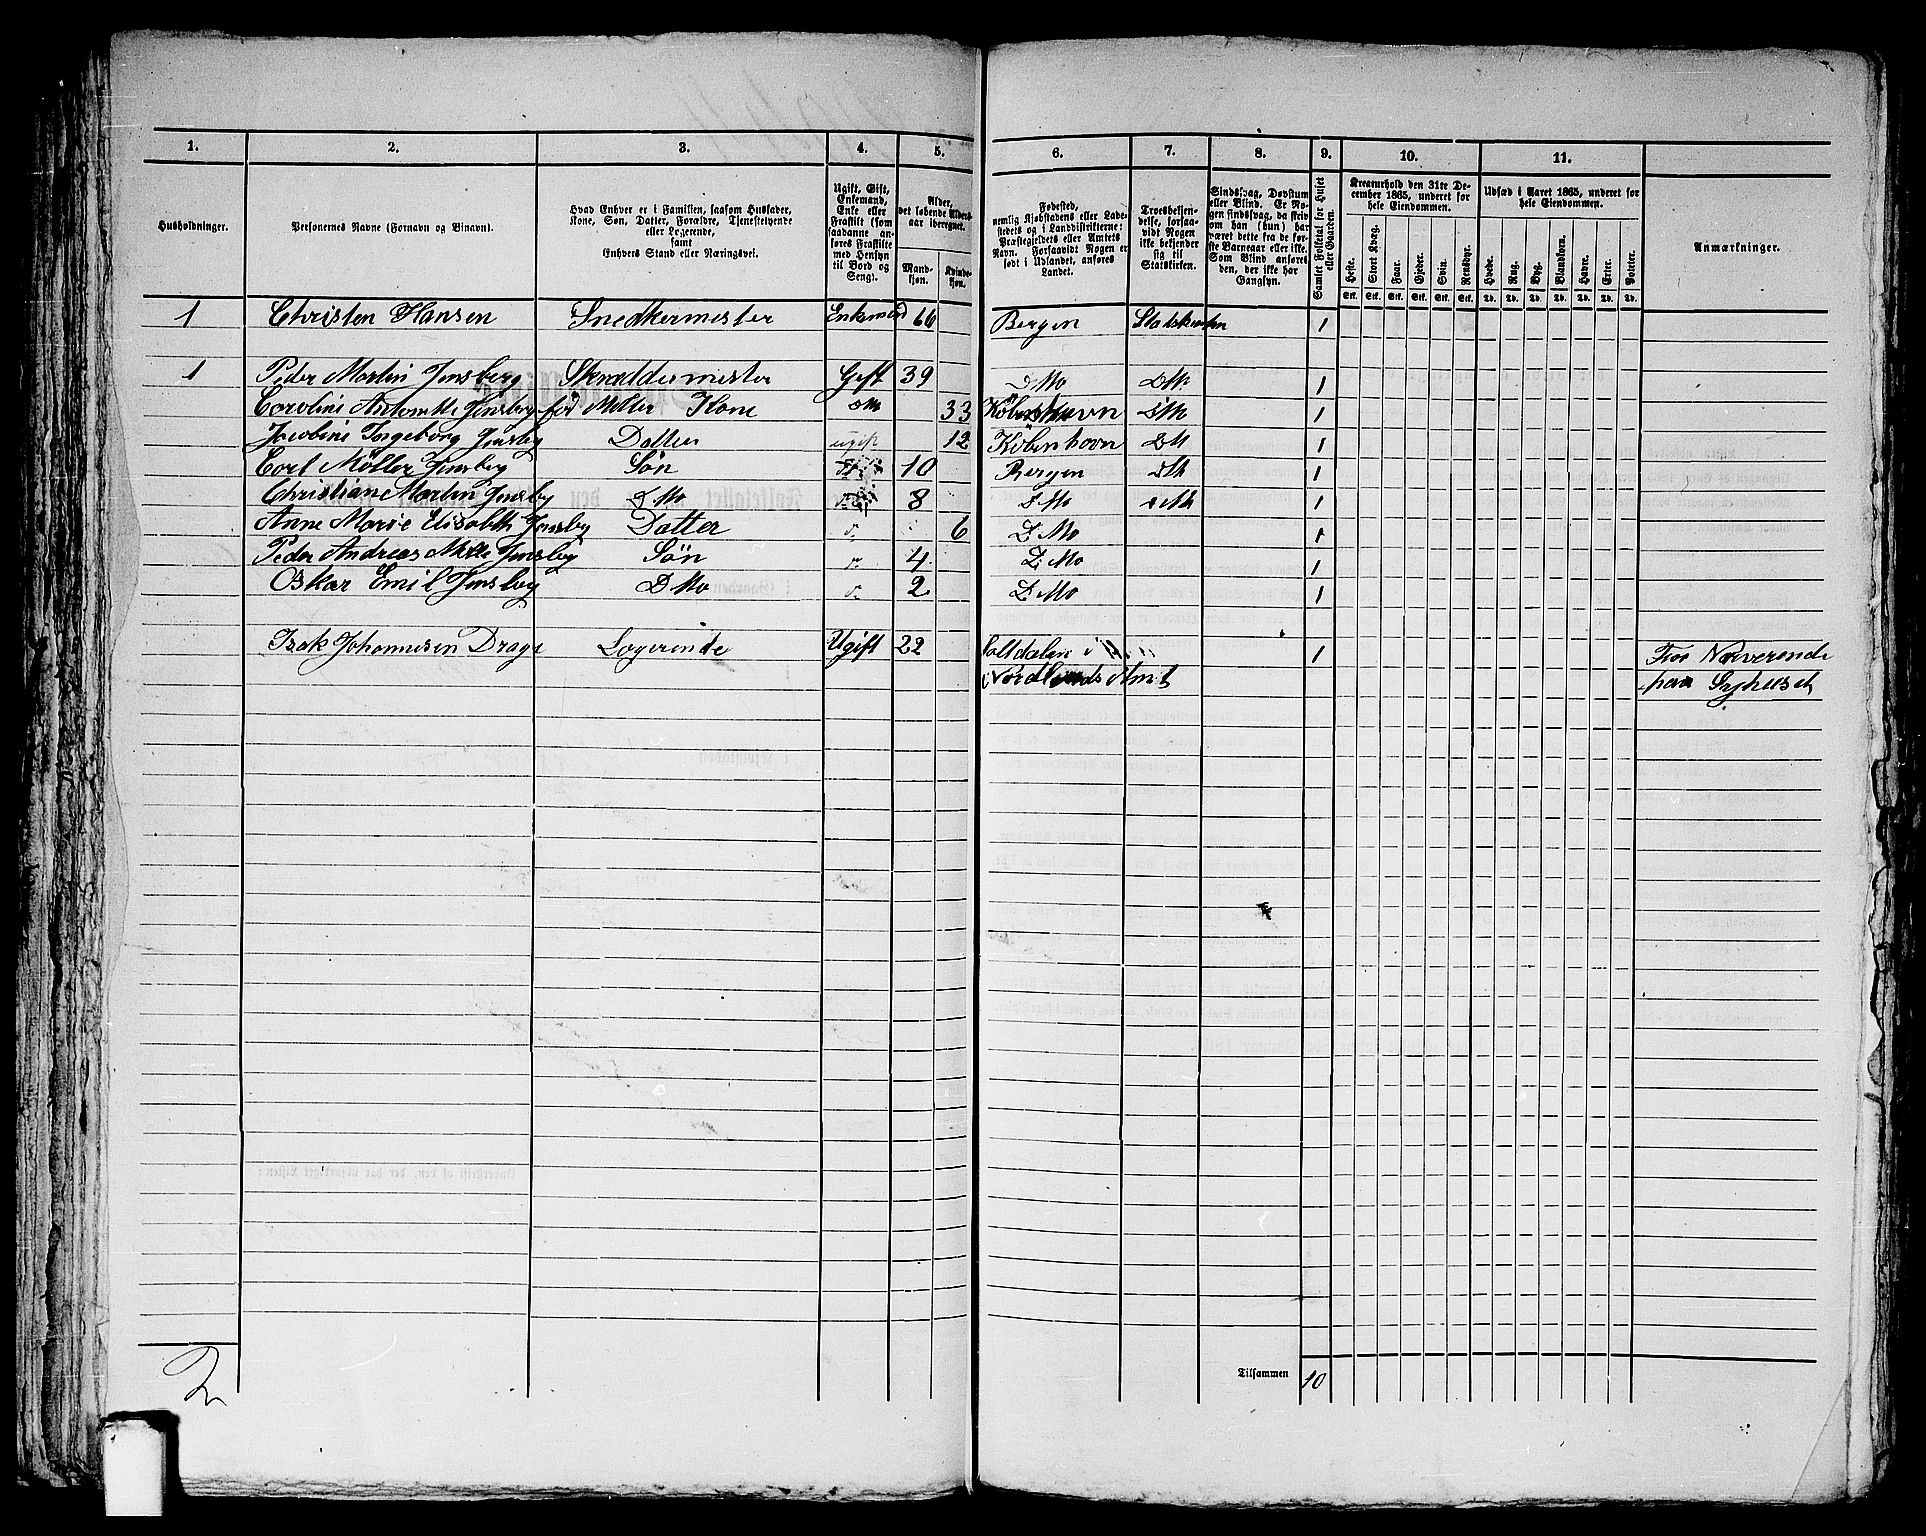 1. 2. 3. 4. 5. 6. 7. 8. 9. 10. 11.
Husholdninger.
Personernes Navne (Fornavn og Binavn).
Hvad Enhver er i Familien, saasom Husfader,
Kone, Søn, Datter, Forældre, Tjenestetyende
eller Logerende,
samt
Enhvers Stand eller Næringsvei.
Ugift, Gift,
Enkemand,
Enke eller
Fraskilt (som
saadanne an-
føres Fraskilte
med Hensyn
til Bord og
Seng).
Alder,
det løbende Alders-
aar iberegnet.
Mand-
kjøn.
Kvinde-
kjøn.
Fødested,
nemlig Kjøbstadens eller Lade-
stedets og i Landdistrikterne:
Præstegjeldets eller Amtets
Navn. Forsaavidt Nogen er
født i Udlandet, anføres
Landet.
Troesbekjen-
delse, forsaa-
vidt Nogen
ikke bekjender
sig til
Statskirken.
Sindssvag, Døvstum
eller Blind. Er No-
gen sindssvag, da skriv
om han (hun) har
været dette fra de før-
ste Barneaar eller ikke.
Som Blind anføres
den, der ikke har
Gangsyn.
Samlet Folketal for Huset
eller Gaarden.
Kreaturhold den 31te De-
cember 1865, underet for
hele Eiendommen.
Heste. Stort Kvæg. Faar. Gjeder. Svin. Rensdyr.
Stk. Stk. Stk. Stk. Stk. Stk.
Udsæd i Aaret 1865, underet for
hele Eiendommen.
Hvede. Rug. Byg. Blandkorn. Havre. Erter. Poteter.
Td. Td. Td. Td. Td. Td. Td.
Anmærkninger.
1 Christen Hansen Snedkermester Enkemand 66 Bergen Statskirken 1
1 Peder Martin Jensberg Skræddermester Gift 39 DMo DMo 1
Caroline Antonette Jensberg fød Møller Kone DMo 33 Kjøbenhavn DMo 1
Jacobine Ingeborg Jensberg Datter ugift 12 Kjøbenhavn DMo 1
Carl Møller Jensberg Søn 10 Bergen DMo 1
Christian Martin Jensberg DMo 8 DMo DMo 1
Anne Marie Elisabeth Jensberg Datter 6 DMo 1
Peder Andreas Jensberg Søn 4 DMo 1
Oskar Emil Jensberg DMo 2 DMo 1
Isak Johannesen Drage Logerende Ugift 22 Saltdalen i 1 Nærverende
Nordlands Amt paa Sykeuset
2 Tilsammen 10